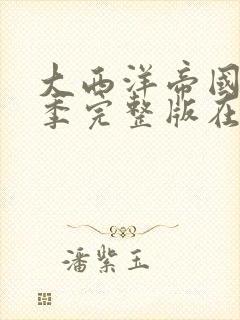 大西洋帝國
季完整版在
潘紫玉